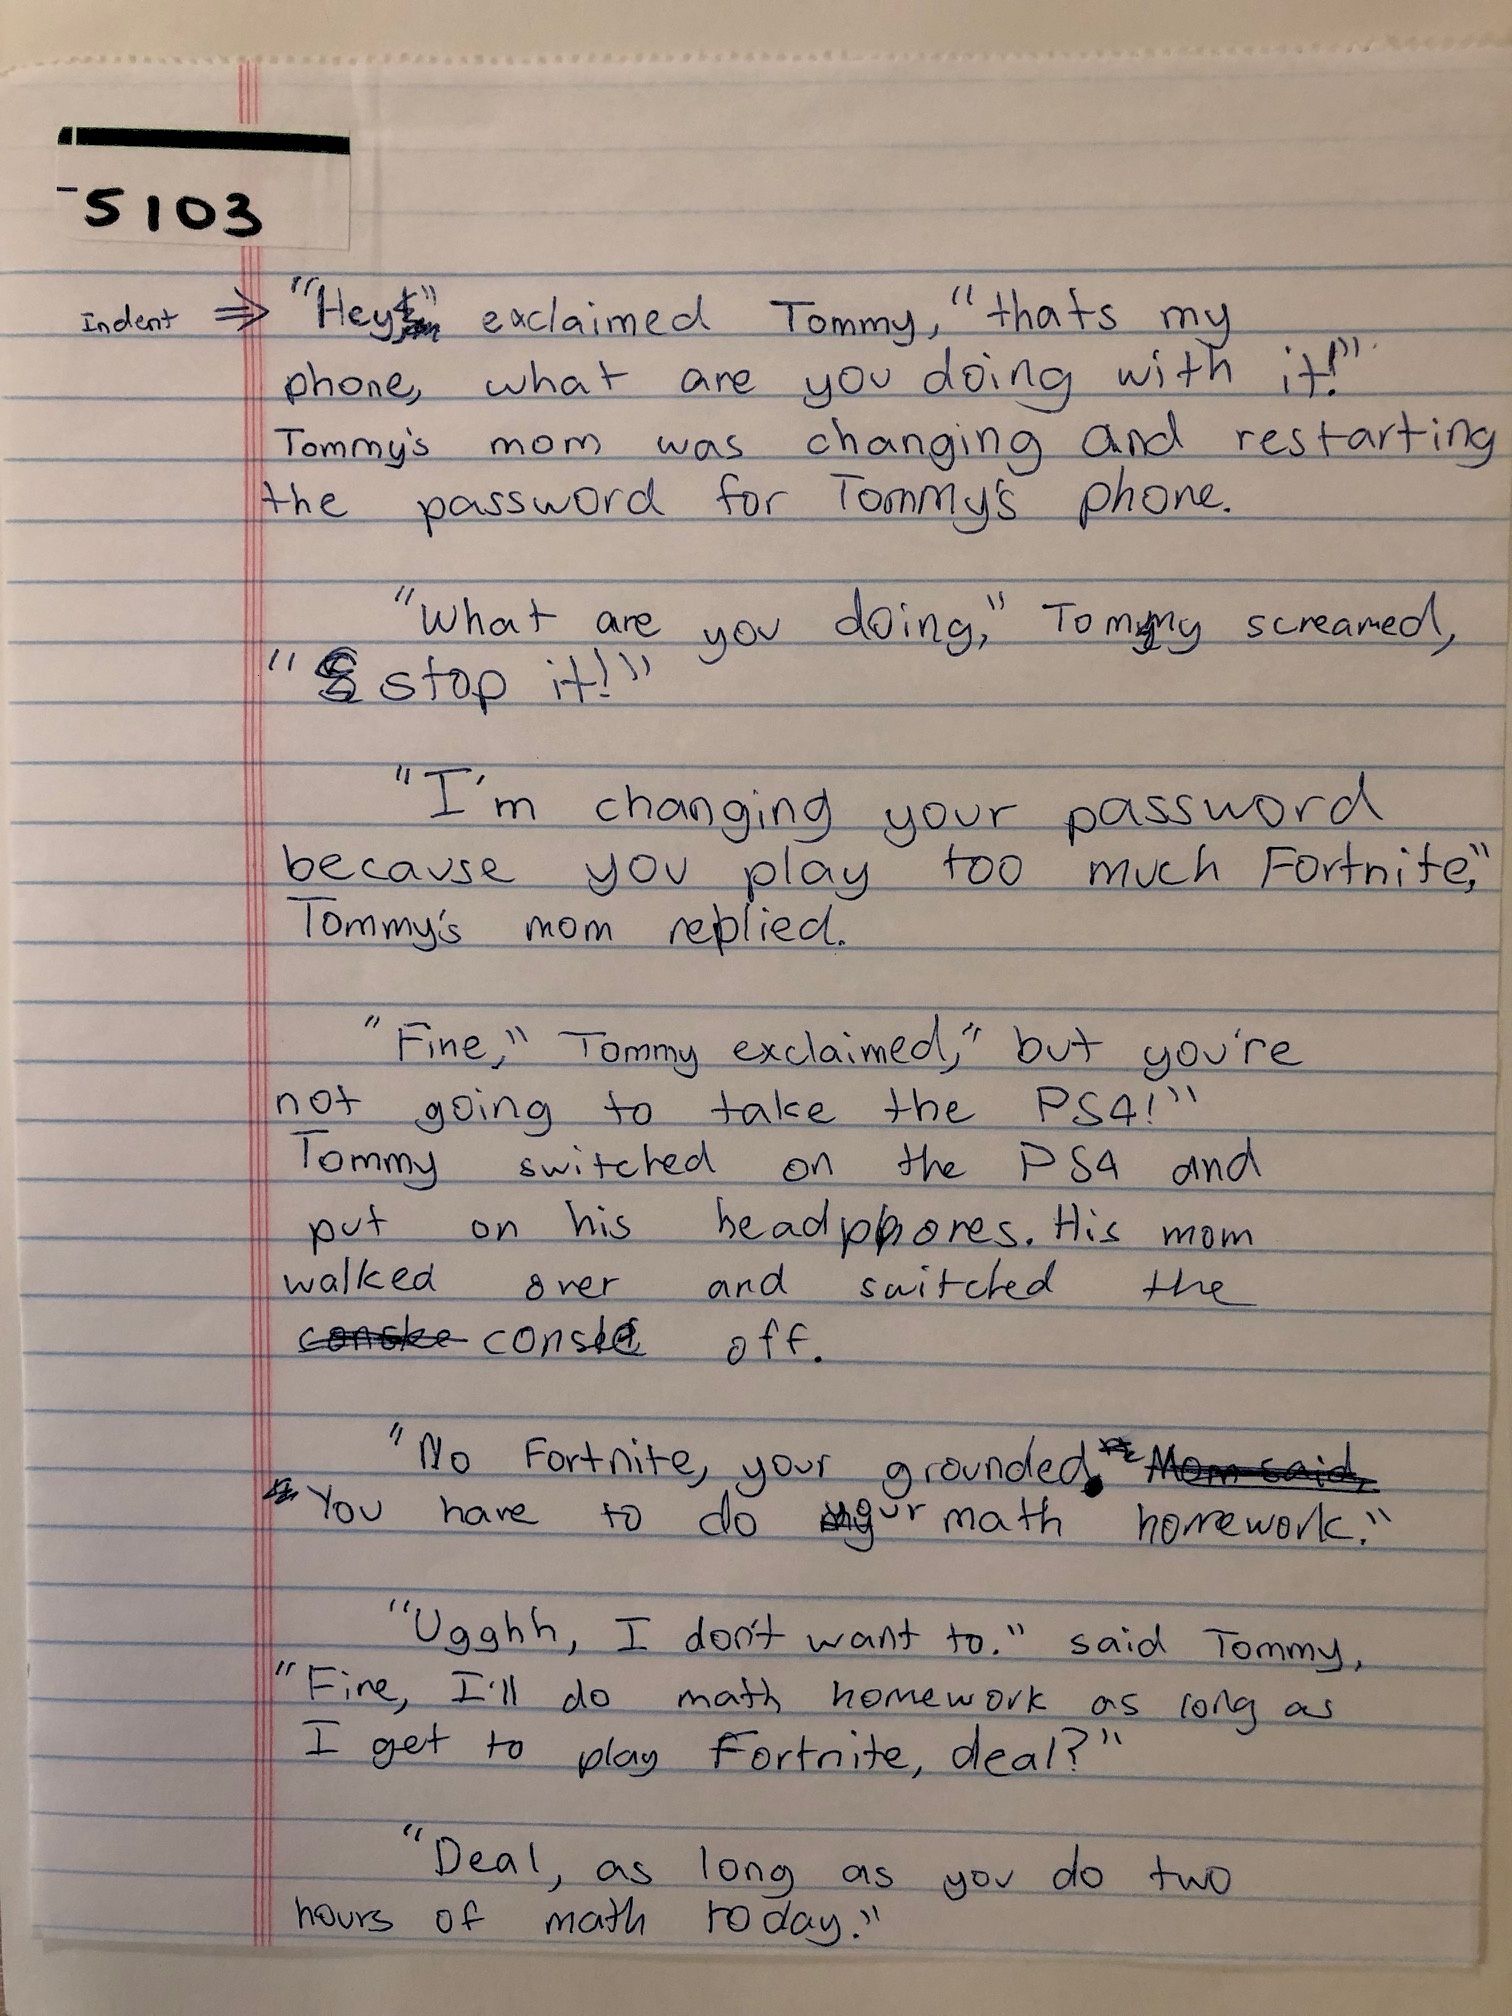 5103
Indent ⇒ "Hey" exclaimed Tommy, "thats my
phone, what are you doing with it!"
Tommy's mom was changing and restarting
the password for Tommy's phone.
"What are you doing," Tommy screamed,
"stop it!"
"I'm changing your password
because you play too much Fortnite,"
Tommy's mom replied.
"Fine," Tommy exclaimed," but you're
not going to take the PS4!"
Tommy switched on the PS4 and
put on his headphones. His mom
walked over and switched the
console off.
"No Fortnite, your grounded.
You have to do your math homework."
"Ugghh, I don't want to." said Tommy,
"Fine, I'll do math homework as long as
I get to play Fortnite, deal?"
"Deal, as long as you do two
hours of math today."